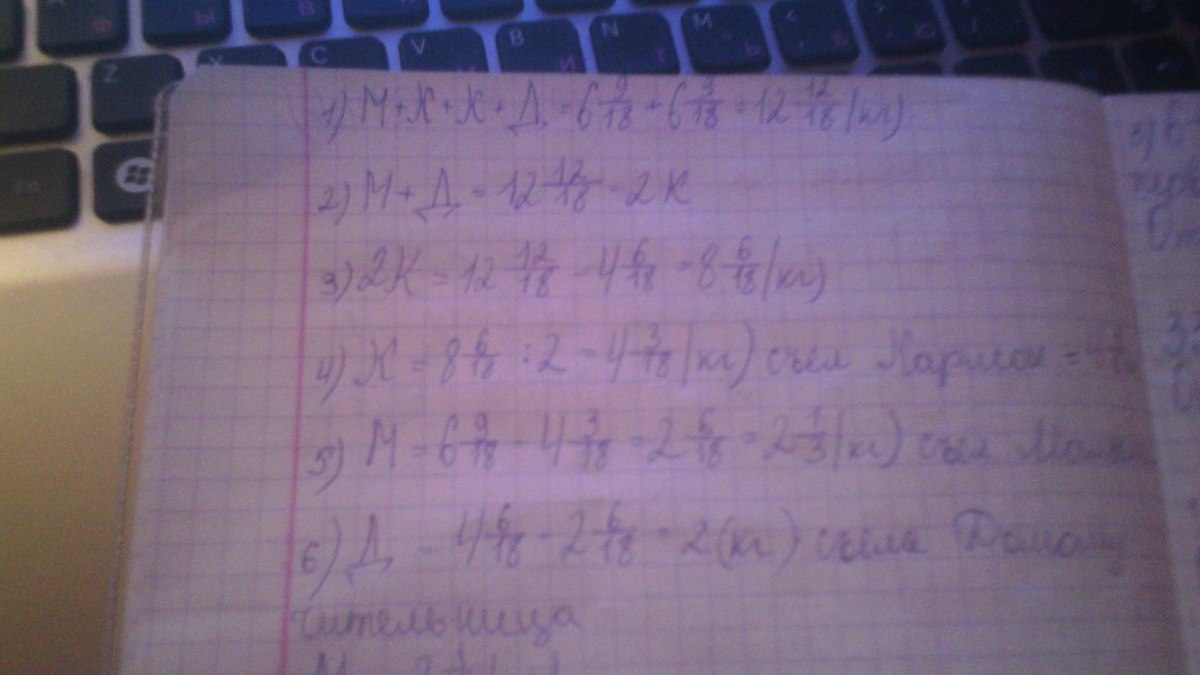 Z X C V B N M
Ф Ы И Т Ь
1) М+К+К+Д = 6 9/18 + 6 3/18 = 12 12/18 (кг)
2) М+Д = 12 12/18 - 2К
3) 2К = 12 12/18 - 4 6/18 = 8 6/18 (кг)
4) К = 8 6/18 : 2 = 4 3/18 (кг) съел Карлсон =
5) М = 6 9/18 - 4 3/18 = 2 6/18 = 2 1/3 (кг) съел
6) Д = 4 6/18 - 2 6/18 = 2 (кг) съела Домо
чительница